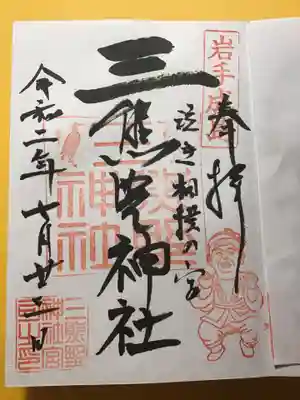 岩手成島
奉拝
泣き相撲の宮
三熊野神社
三熊野神社
令和二年七月廿三日